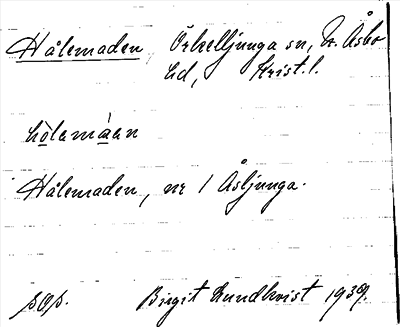 Hålemaden Örkelljunga sn, N. Åsbo
hd, Krist. l.
hòlamàan
Hålemaden, nr 1 Åsljunga.
Birgit Lundkvist 1939.